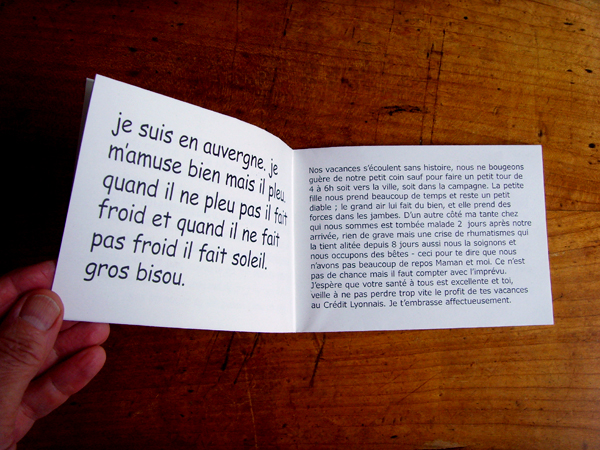 je suis en auvergne. je
m'amuse bien mais il pleu.
quand il ne pleu pas il fait
froid et quand il ne fait
pas froid il fait soleil.
gros bisou.
Nos vacances s'écoulent sans histoire, nous ne bougeons
guère de notre petit coin sauf pour faire un petit tour de
4 à 6h soit vers la ville, soit dans la campagne. La petite
fille nous prend beaucoup de temps et reste un petit
diable ; le grand air lui fait du bien, et elle prend des
forces dans les jambes. D'un autre côté ma tante chez
qui nous sommes est tombée malade 2 jours après notre
arrivée, rien de grave mais une crise de rhumatismes qui
la tient alitée depuis 8 jours aussi nous la soignons et
nous occupons des bêtes - ceci pour te dire que nous
n'avons pas beaucoup de repos Maman et moi. Ce n'est
pas de chance mais il faut compter avec l'imprévu.
J'espère que votre santé à tous est excellente et toi,
veille à ne pas perdre trop vite le profit de tes vacances
au Crédit Lyonnais. Je t'embrasse affectueusement.